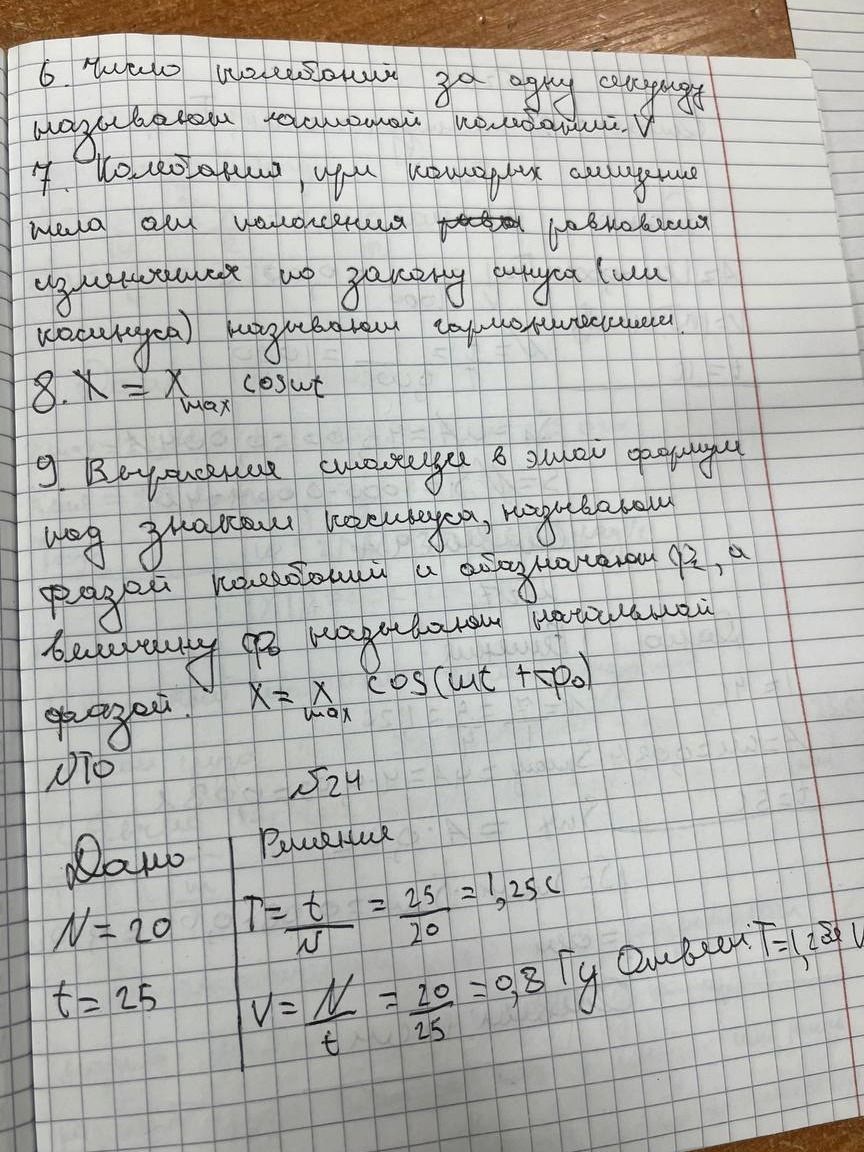 6. Число колебаний за одну секунду
называют частотой колебаний. V
7. Колебания, при которых смещение
тела от положения равновесия
изменяется по закону синуса (или
косинуса) называют гармоническими.
8. X = X max cos ωt
9. Выражения стоящее в этой формуле
под знаком косинуса, называют
фазой колебаний и обозначают φ, а
величину φ₀ называют начальной
фазой. X = X max cos(ωt + φ₀)
№10
№24
Дано Решение
N = 20 T = t/N = 25/20 = 1,25 с
t = 25 V = N/t = 20/25 = 0,8 Гц Ответ: T = 1,25с V